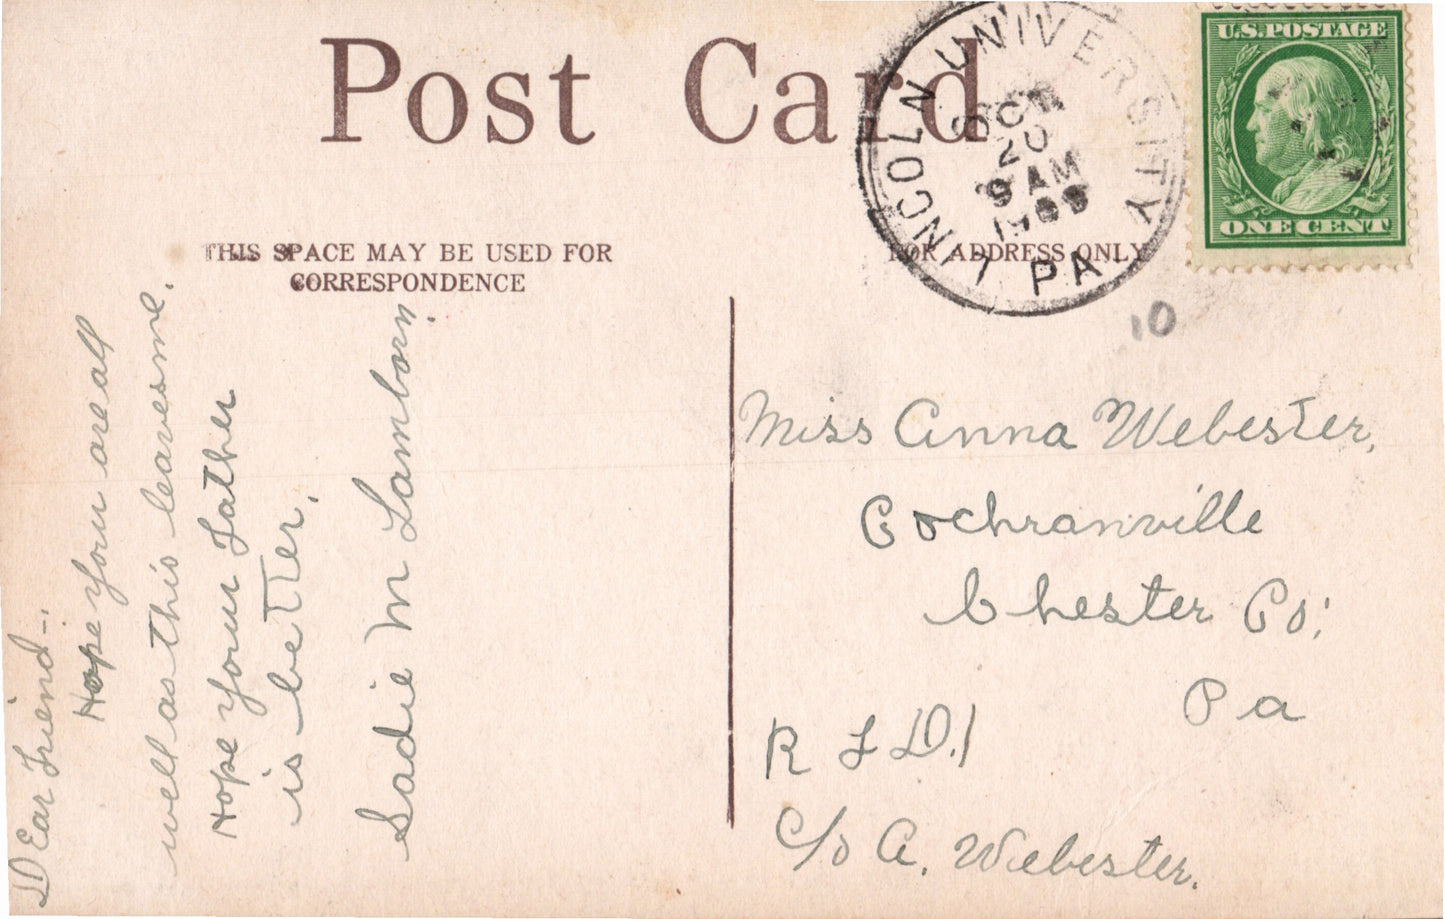 Post Card
THIS SPACE MAY BE USED FOR
CORRESPONDENCE
FOR ADDRESS ONLY
LINCOLN UNIVERSITY
OCT
20
9 AM
1909
PA.
U.S. POSTAGE
ONE CENT
10
Dear Friend_.
Hope your are all
well as this leaves me.
Hope your Father
is better.
Sadie M Lamborn.
Miss Anna Webester,
Cochranville
Chester Co.
Pa
R F D. 1
C/o A. Webester.